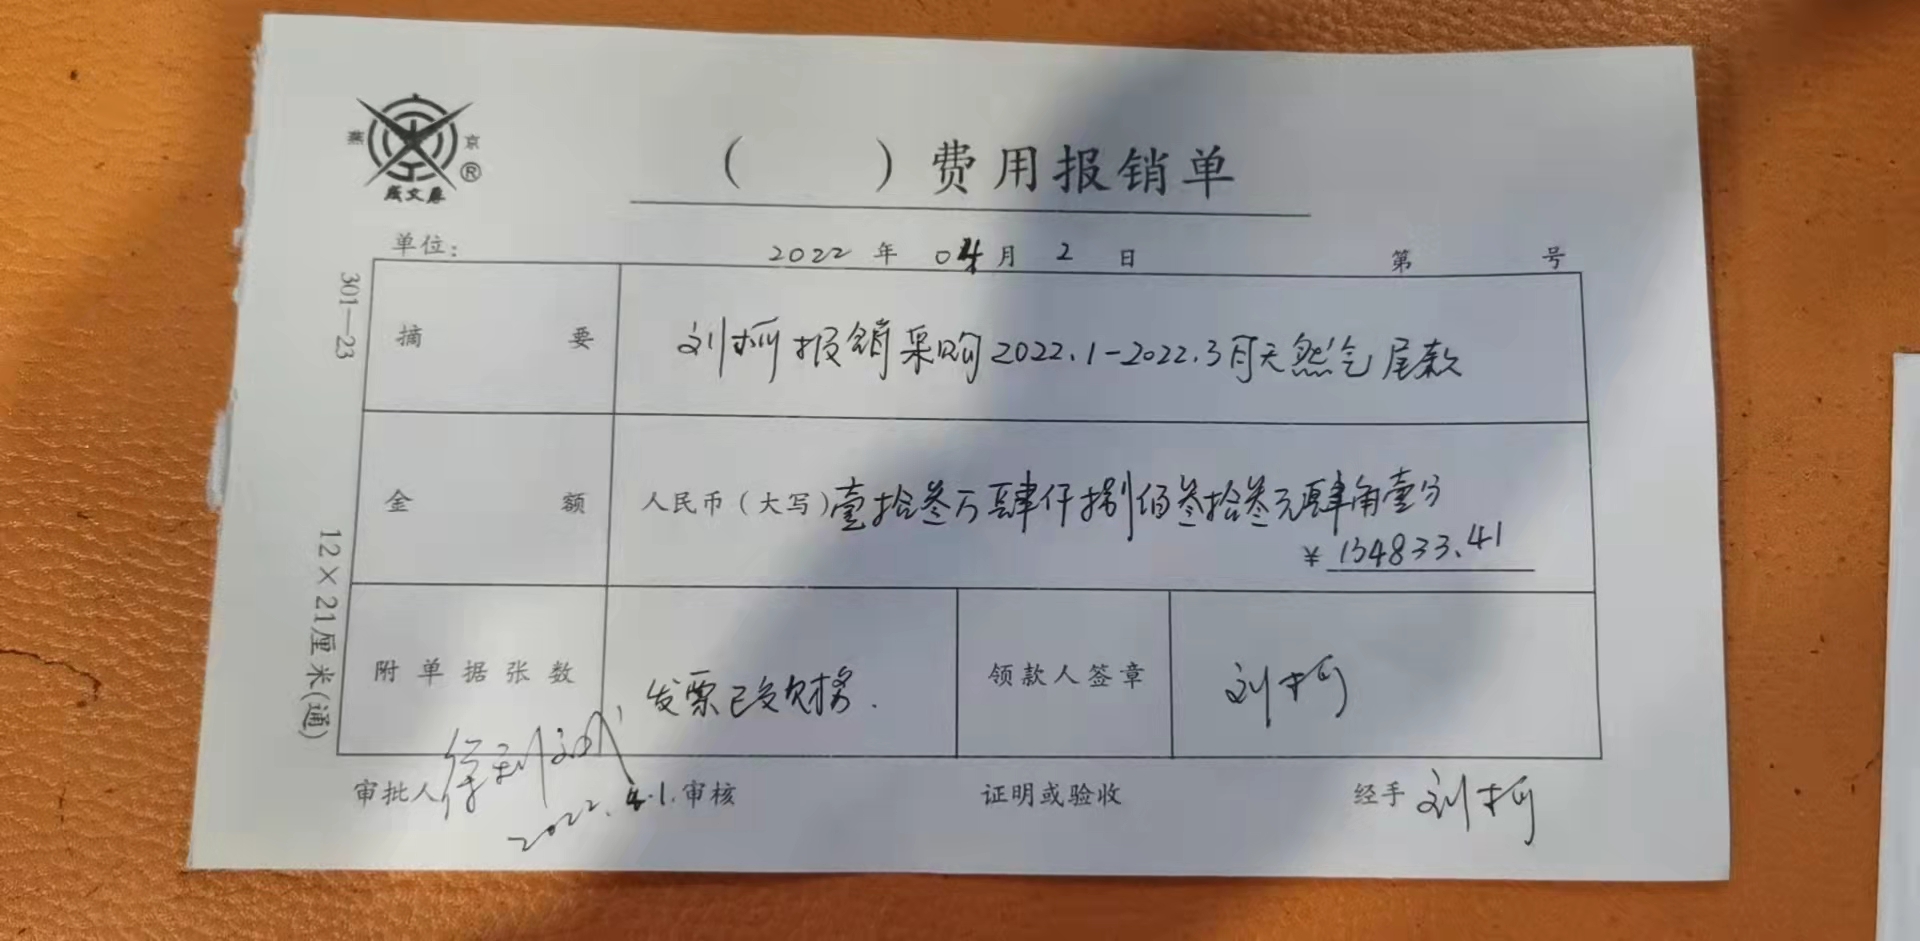 燕 京
®
成文厚
( ) 费用报销单
单位: 2022 年 04 月 2 日 第 号
301—23
12×21厘米(通)
摘要 刘柯报销采购2022.1-2022.3月天然气尾款
金额 人民币(大写)壹拾叁万肆仟捌佰叁拾叁元肆角壹分
¥ 134833.41
附单据张数 发票已交财务. 领款人签章 刘柯
审批人 审核 证明或验收 经手 刘柯
2022.4.1.